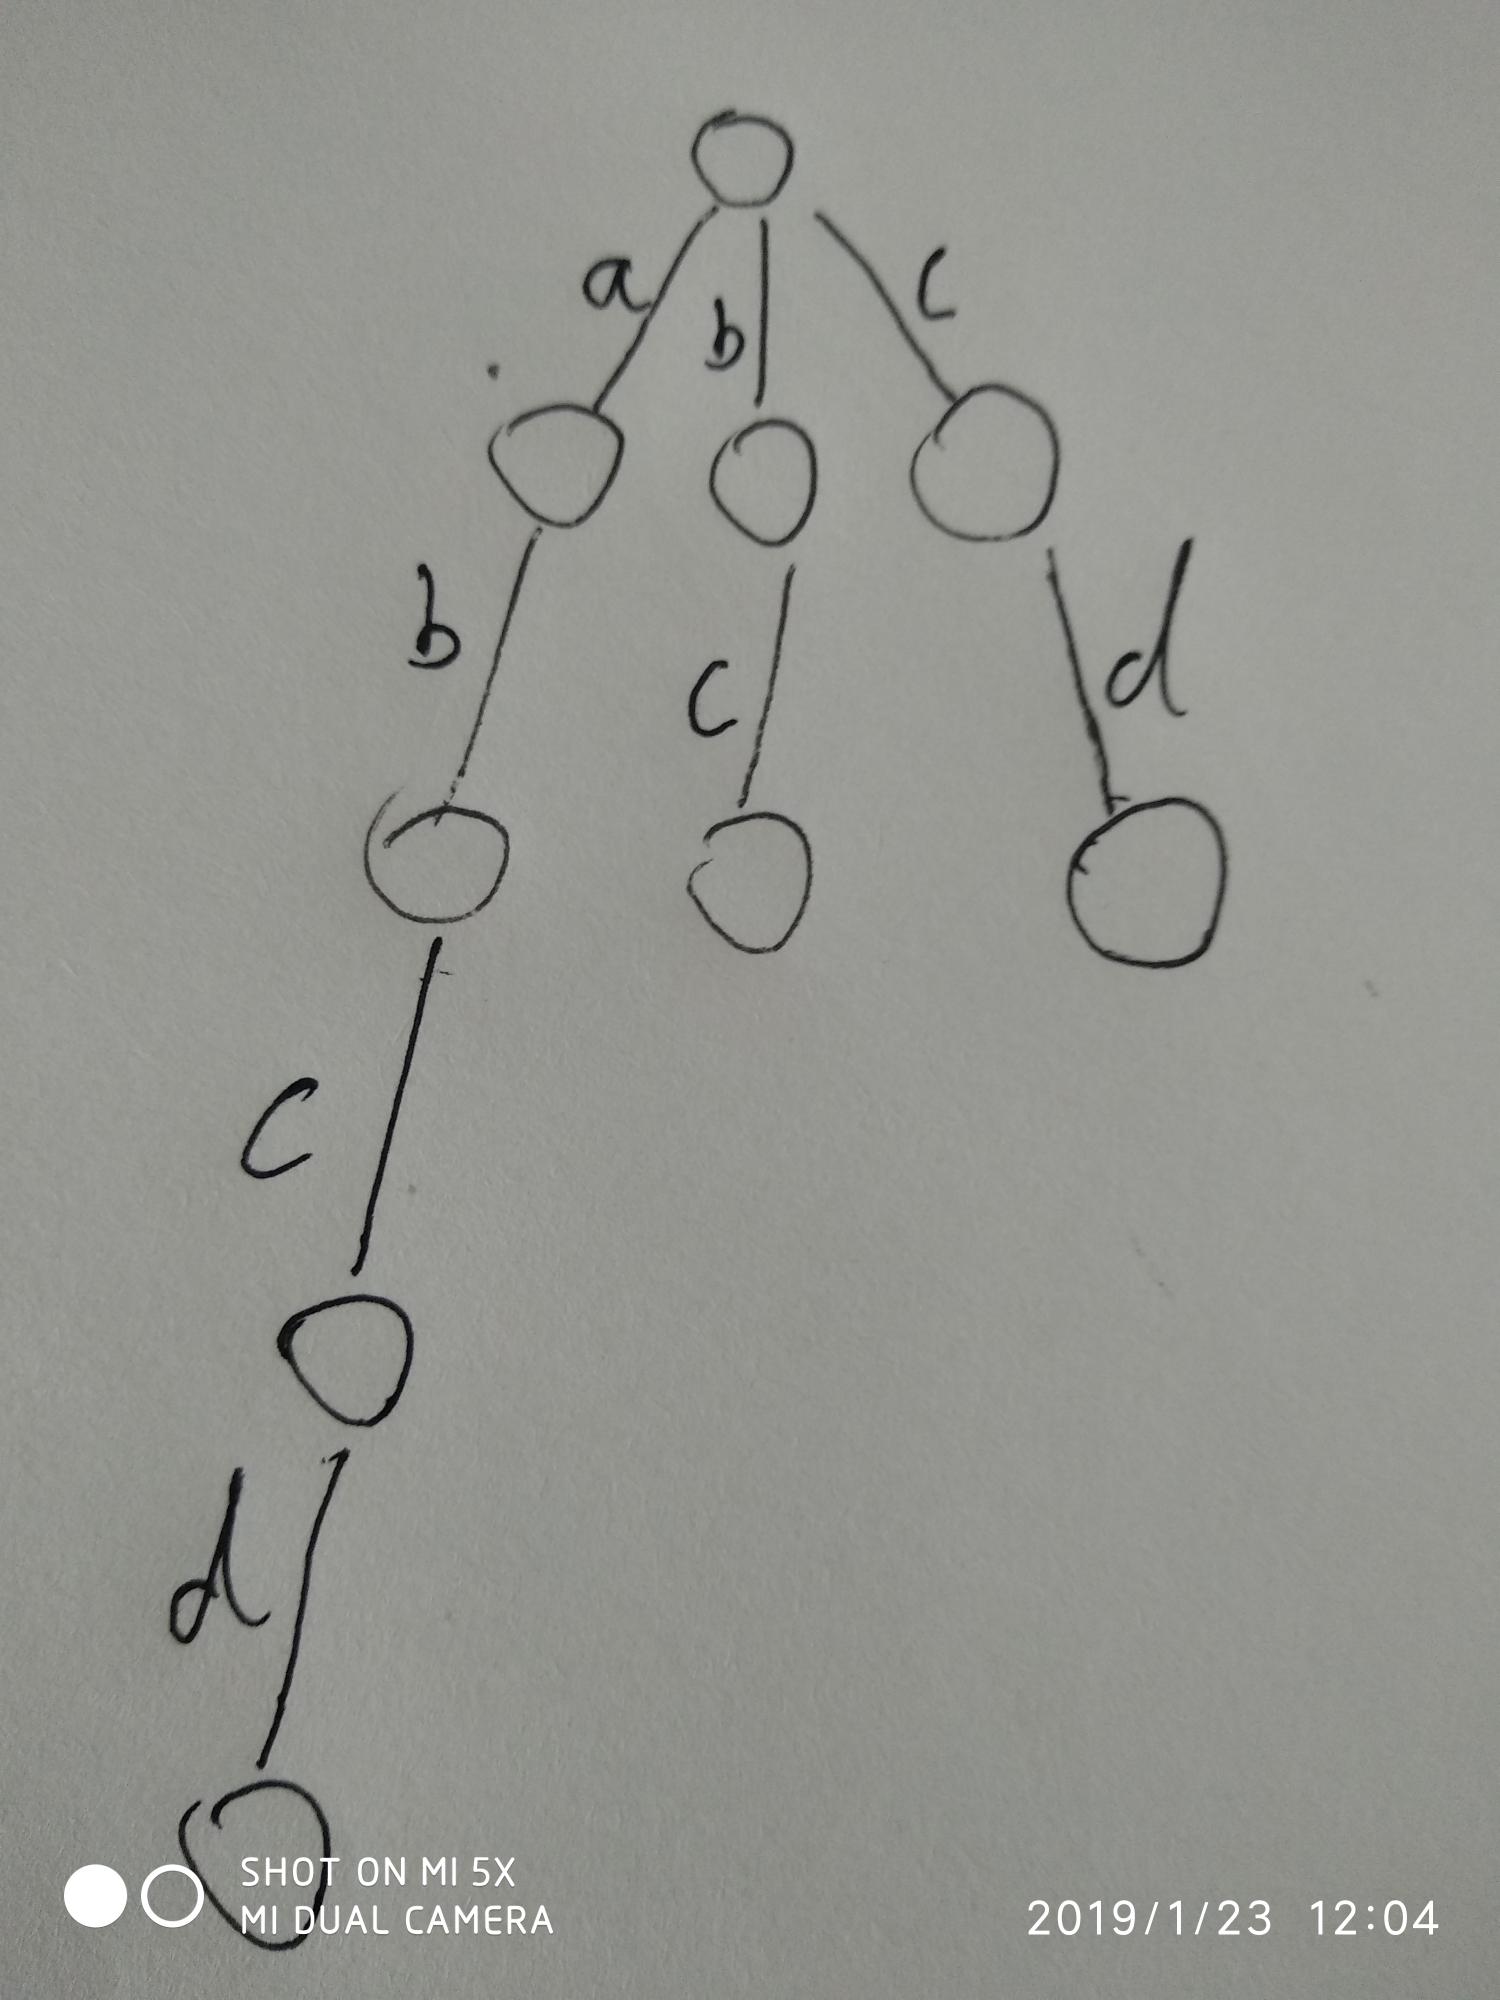 a
b
c
b
c
d
c
d
SHOT ON MI 5X
MI DUAL CAMERA
2019/1/23 12:04